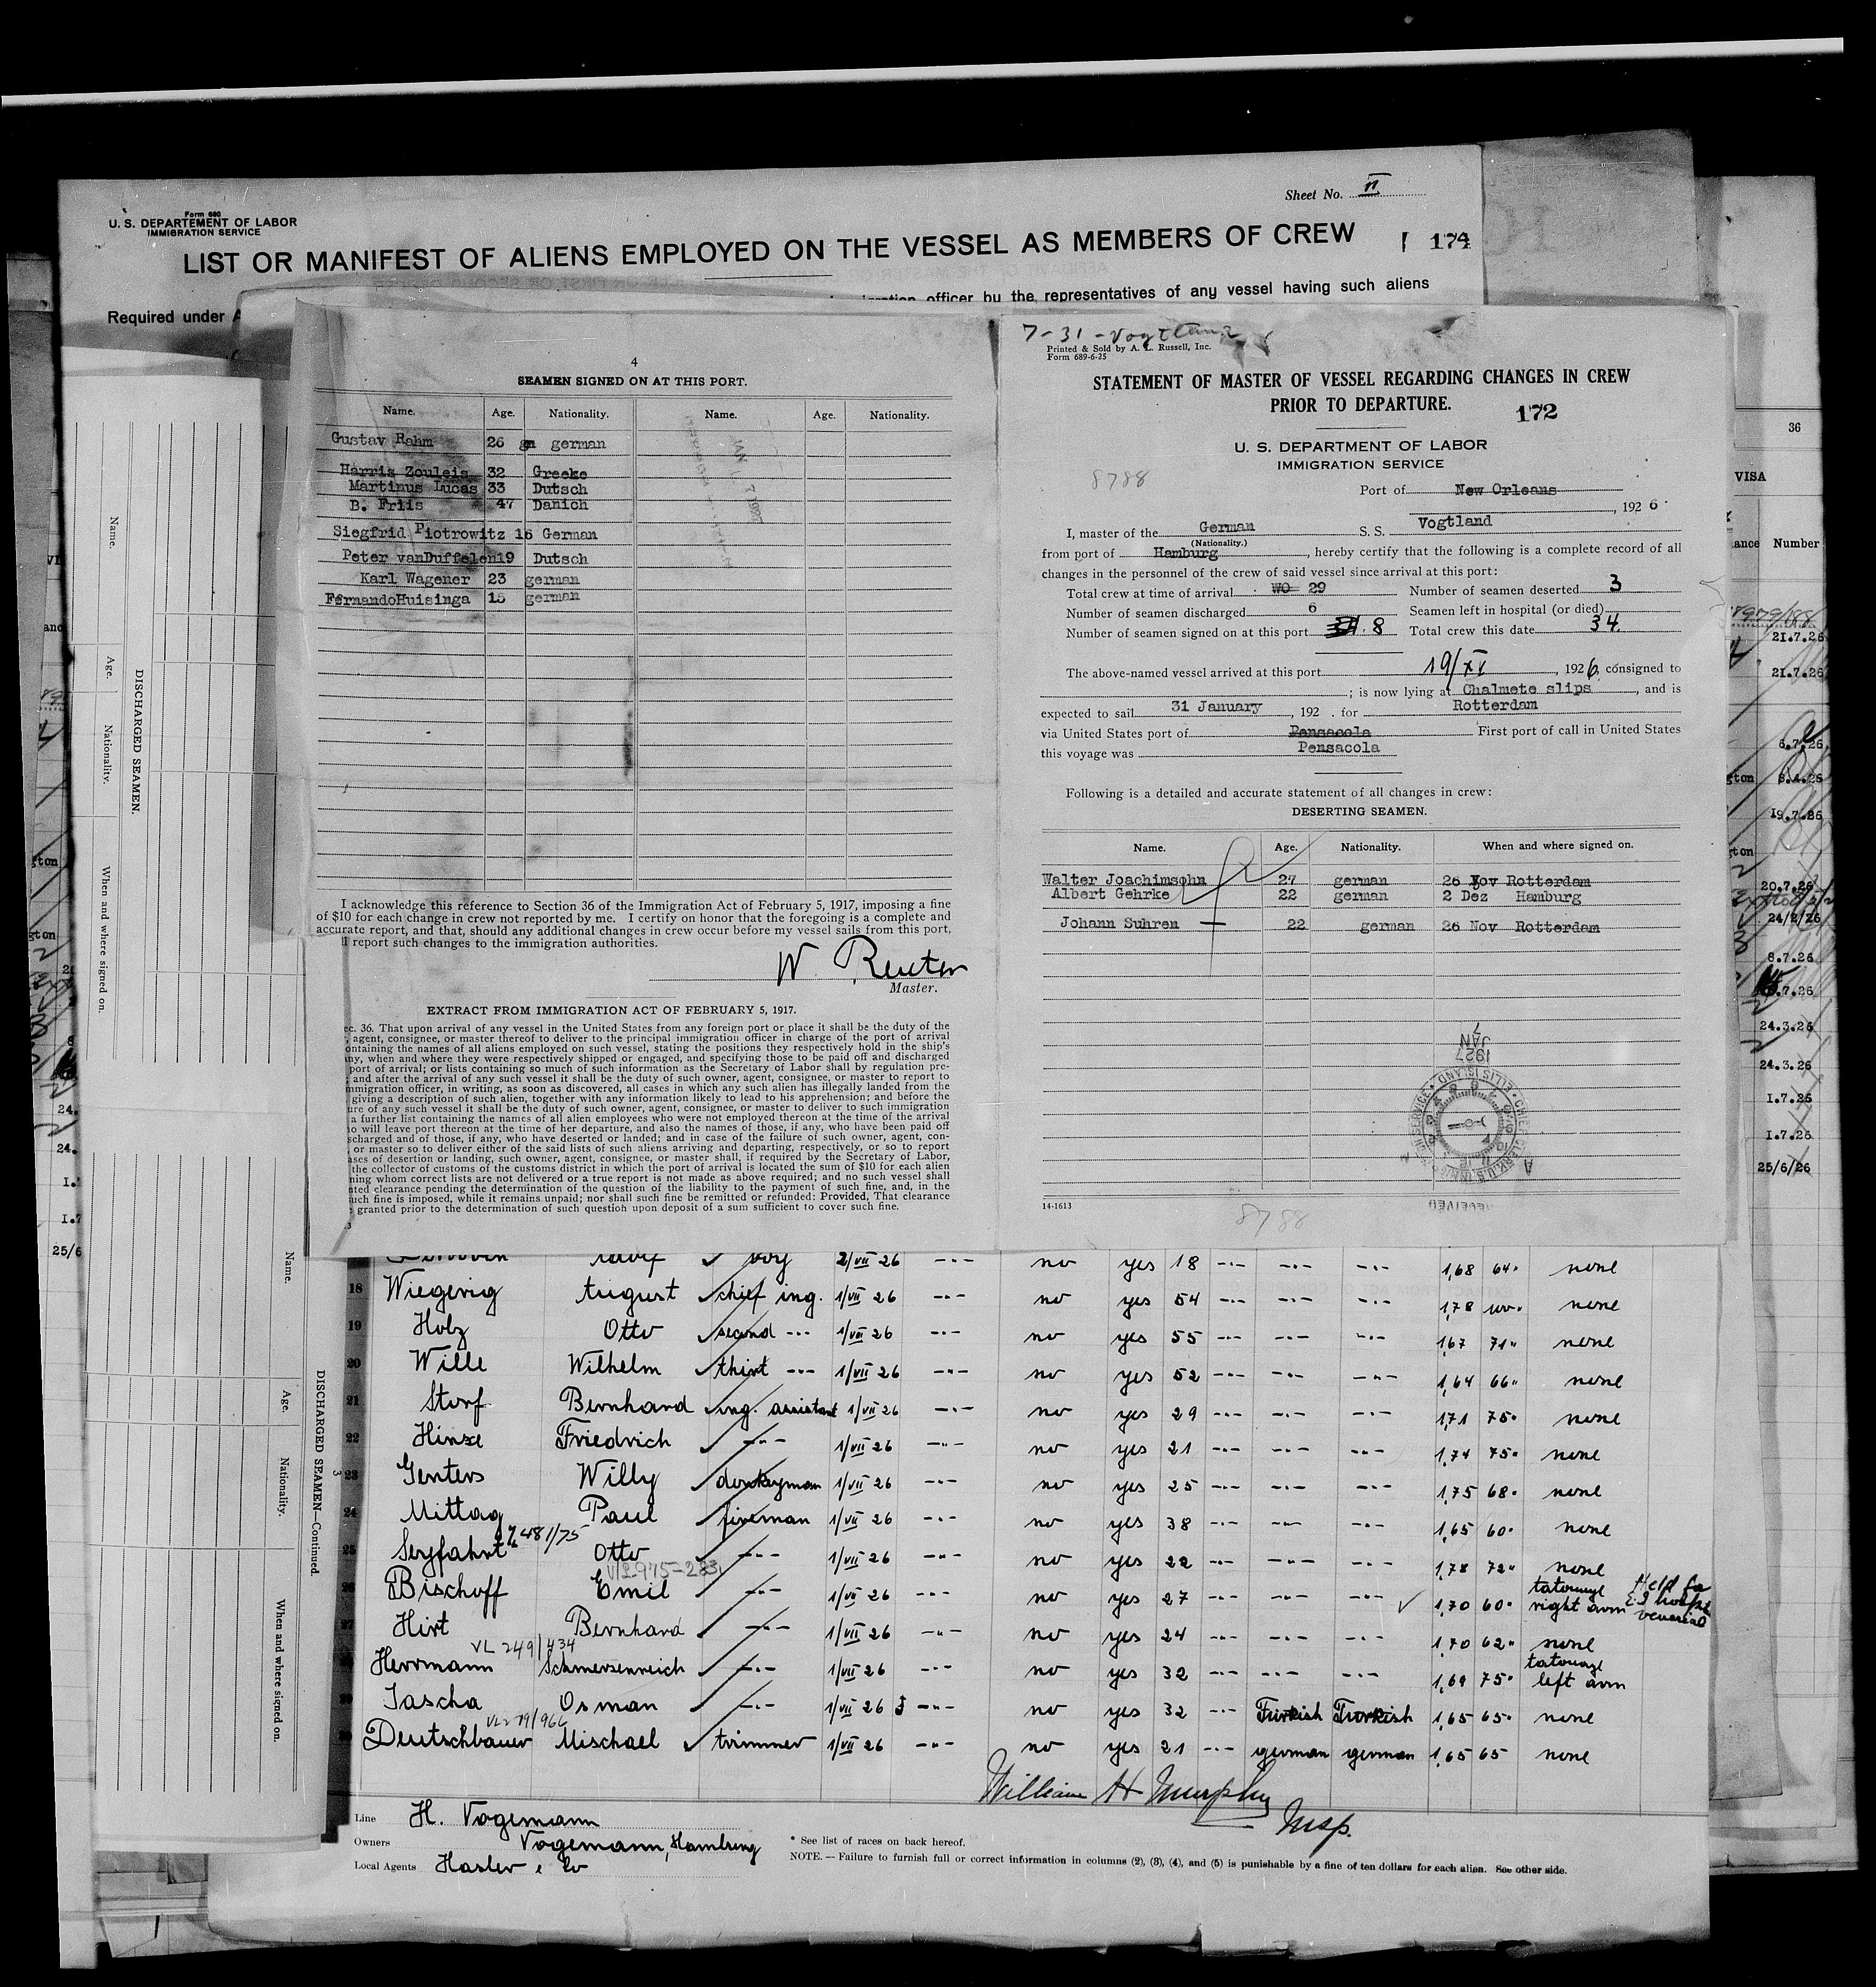 Form 680
U. S. DEPARTEMENT OF LABOR
IMMIGRATION SERVICE
Sheet No. II
LIST OR MANIFEST OF ALIENS EMPLOYED ON THE VESSEL AS MEMBERS OF CREW
174
Required under
officer by the representatives of any vessel having such aliens
4
SEAMEN SIGNED ON AT THIS PORT.
Name. Age. Nationality. Name. Age. Nationality.
Gustav Rahm 26 german
Harris Zouleis 32 Greeke
Martinus Lucas 33 Dutsch
B. Friis 47 Danich
Siegfrid Piotrowitz 16 German
Peter vanDuffelen 19 Dutsch
Karl Wagener 23 german
FernandoHuisinga 15 german
I acknowledge this reference to Section 36 of the Immigration Act of February 5, 1917, imposing a fine
of $10 for each change in crew not reported by me. I certify on honor that the foregoing is a complete and
accurate report, and that, should any additional changes in crew occur before my vessel sails from this port,
I report such changes to the immigration authorities.
W. Reuter
Master.
EXTRACT FROM IMMIGRATION ACT OF FEBRUARY 5, 1917.
ec. 36. That upon arrival of any vessel in the United States from any foreign port or place it shall be the duty of the
, agent, consignee, or master thereof to deliver to the principal immigration officer in charge of the port of arrival
ontaining the names of all aliens employed on such vessel, stating the positions they respectively hold in the ship's
any, when and where they were respectively shipped or engaged, and specifying those to be paid off and discharged
port of arrival; or lists containing so much of such information as the Secretary of Labor shall by regulation pre-
; and after the arrival of any such vessel it shall be the duty of such owner, agent, consignee, or master to report to
mmigration officer, in writing, as soon as discovered, all cases in which any such alien has illegally landed from the
giving a description of such alien, together with any information likely to lead to his apprehension; and before the
ure of any such vessel it shall be the duty of such owner, agent, consignee, or master to deliver to such immigration
a further list containing the names of all alien employees who were not employed thereon at the time of the arrival
o will leave port thereon at the time of her departure, and also the names of those, if any, who have been paid off
scharged and of those, if any, who have deserted or landed; and in case of the failure of such owner, agent, con-
, or master so to deliver either of the said lists of such aliens arriving and departing, respectively, or so to report
ases of desertion or landing, such owner, agent, consignee, or master shall, if required by the Secretary of Labor,
the collector of customs of the customs district in which the port of arrival is located the sum of $10 for each alien
ning whom correct lists are not delivered or a true report is not made as above required; and no such vessel shall
nted clearance pending the determination of the question of the liability to the payment of such fine, and, in the
uch fine is imposed, while it remains unpaid; nor shall such fine be remitted or refunded: Provided, That clearance
granted prior to the determination of such question upon deposit of a sum sufficient to cover such fine.
7-31-Vogtland
Printed & Sold by A. L. Russell, Inc.
Form 689-6-25
STATEMENT OF MASTER OF VESSEL REGARDING CHANGES IN CREW
PRIOR TO DEPARTURE.
172
U. S. DEPARTMENT OF LABOR
IMMIGRATION SERVICE
8788
Port of New Orleans
, 192 6
I, master of the German S. S. Vogtland
(Nationality.)
from port of Hamburg, hereby certify that the following is a complete record of all
changes in the personnel of the crew of said vessel since arrival at this port:
Total crew at time of arrival 29 Number of seamen deserted 3
Number of seamen discharged 6 Seamen left in hospital (or died)
Number of seamen signed on at this port 8 Total crew this date 34
The above-named vessel arrived at this port 19/XI, 1926, consigned to
; is now lying at Chalmete slips, and is
expected to sail 31 January, 192 . for Rotterdam
via United States port of Pensacola First port of call in United States
this voyage was Pensacola
Following is a detailed and accurate statement of all changes in crew:
DESERTING SEAMEN.
Name. Age. Nationality. When and where signed on.
Walter Joachimsohn 27 german 26 Nov Rotterdam
Albert Gehrke 22 german 2 Dez Hamburg
Johann Suhren 22 german 26 Nov Rotterdam
1927
JAN
7
14-1613
8788
RECEIVED
36
VISA
Number
21.7.26
21.7.26
6.7.26
8.4.26
19.7.26
20.7.26
24/2/26
8.7.26
24.3.26
24.3.26
1.7.26
1.7.26
25/6/26
Name. Age. Nationality. When and where signed on.
DISCHARGED SEAMEN.
Name. Age. Nationality. When and where signed on.
DISCHARGED SEAMEN—Continued.
3
boy 2/VII 26 no yes 18 1,68 64 none
18 Wiegerig August chief ing. 1/VII 26 no yes 54 1,78 none
19 Holz Otto second 1/VII 26 no yes 55 1,67 71 none
20 Wille Wilhelm thirt 1/VII 26 no yes 52 1,64 66 none
21 Storf Bernhard ing. assistant 1/VII 26 no yes 29 1,71 75 none
22 Hinze Friedrich 1/VII 26 no yes 21 1,74 75 none
23 Genters Willy donkeyman 1/VII 26 no yes 25 1,75 68 none
24 Mittag Paul fireman 1/VII 26 no yes 38 1,65 60 none
25 Seyfahrt Otto 1/VII 26 no yes 22 1,78 72 none
26 Bischoff Emil 1/VII 26 no yes 27 1,70 60 tatouage right arm
27 Hirt Bernhard 1/VII 26 no yes 24 1,70 62 none
VL 249/434
Herrmann Schmerzenreich 1/VII 26 no yes 32 1,69 75 tatouage left arm
Jascha Osman 1/VII 26 no yes 32 Turkish Turkish 1,65 65 none
Deutschbauer Mischael trimmer 1/VII 26 no yes 21 german german 1,65 65 none
William H Murphy
Insp.
Line H. Vogemann
Owners Vogemann, Hamburg
Local Agents Hasler & Co
* See list of races on back hereof.
NOTE. — Failure to furnish full or correct information in columns (2), (3), (4), and (5) is punishable by a fine of ten dollars for each alien. See other side.